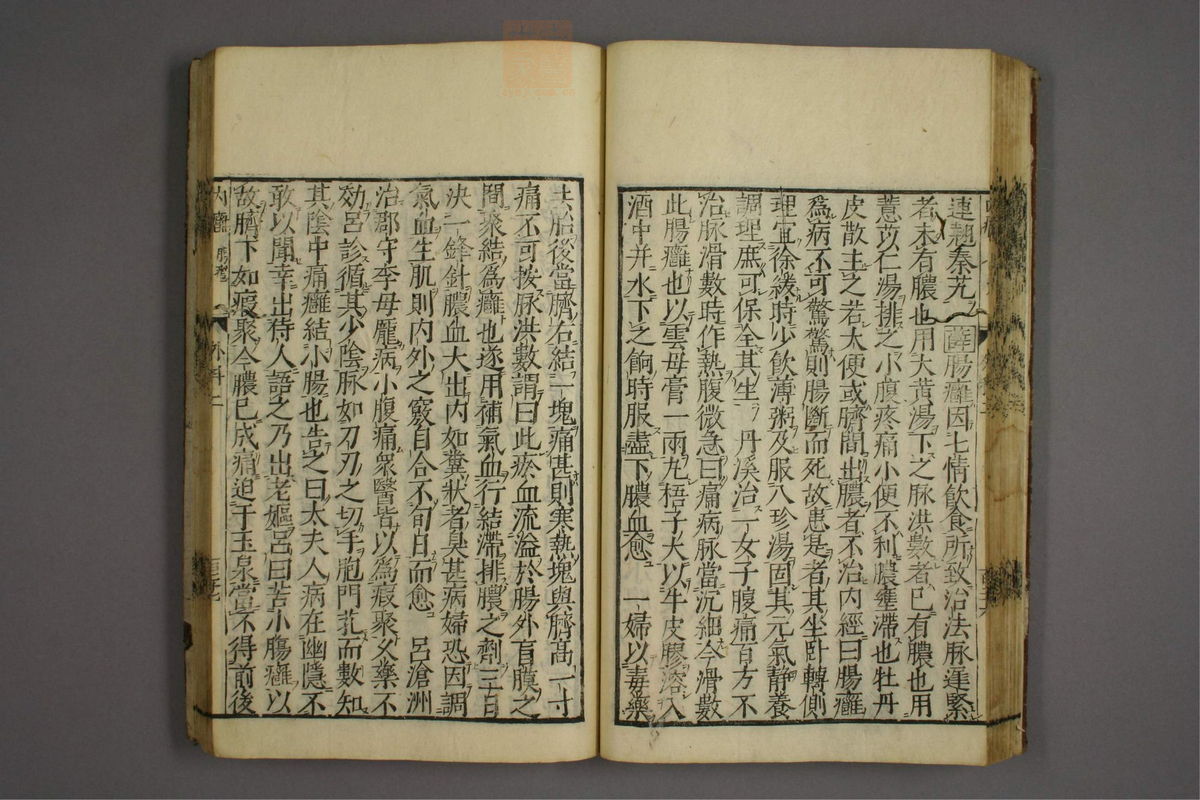 連翹秦艽 腸癰因七情飲食所致治法脉遲緊
者未有膿也用大黄湯下之脉洪數者已有膿也用
薏苡仁湯排之小腹疼痛小便不利膿壅滯也牡丹
皮散主之若大便或臍間出膿者不治内經曰腸癰
爲病不可驚驚則腸斷而死故患是者其坐卧轉側
理宜徐緩時少飲薄粥及服八珍湯固其元氣靜養
調理庶可保全其生 丹溪治一女子腹痛百方不
治脉滑數時作熱腹微急曰痛病脉當沉細今滑數
此腸癰也以雲母膏一兩丸梧子大以牛皮膠溶入
酒中并水下之餉時服盡下膿血愈 一婦以毒藥
去胎後當臍右結一塊痛甚則寒熱塊與臍高一寸
痛不可按脉洪數謂曰此瘀血流溢於腸外肓膜之
間聚結爲癰也遂用補氣血行結滯排膿之劑三日
決一鋒針膿血大出内如糞狀者臭甚病婦恐因調
氣血生肌則内外之竅自合不旬日而愈 呂滄洲
治郡守李母龐病小腹痛衆醫皆以爲瘕聚久藥不
効呂診循其少陰脉如刃刃之切手胞門芤而數知
其陰中痛癰結小腸也告之曰太夫人病在幽隱不
敢以聞幸出侍人語之乃出老嫗呂曰苦小腸癰以
故臍下如瘕聚今膿已成痛迫于玉泉當不得前後
内癰 外科二